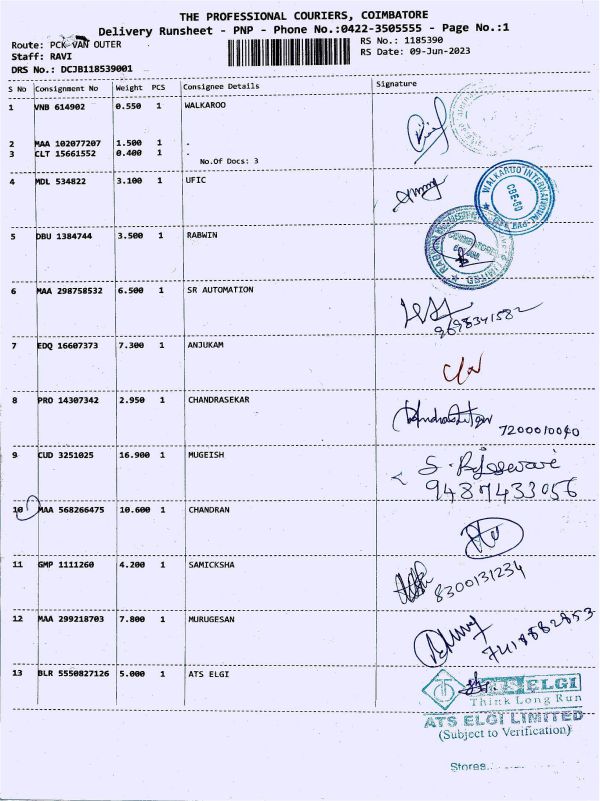 THE PROFESSIONAL COURIERS, COIMBATORE
Delivery Runsheet - PNP - Phone No.:0422-3505555 - Page No.:1
Route: PCK VAN OUTER
RS No.: 1185390
Staff: RAVI
RS Date: 09-Jun-2023
DRS No.: DCJB118539001
S No Consignment No Weight PCS Consignee Details Signature
1 VNB 614902 0.550 1 WALKAROO
2 MAA 102077207 1.500 1 .
3 CLT 15661552 0.400 1 .
No.Of Docs: 3
4 MDL 534822 3.100 1 UFIC
WALKAROO INTERNATIONAL
CBE-60
5 DBU 1384744 3.500 1 RABWIN
6 MAA 298758532 6.500 1 SR AUTOMATION
9698341582
7 EDQ 16607373 7.300 1 ANJUKAM
8 PRO 14307342 2.950 1 CHANDRASEKAR
7200010040
9 CUD 3251025 16.900 1 MUGEISH
9487433056
10 MAA 568266475 10.600 1 CHANDRAN
11 GMP 1111260 4.200 1 SAMICKSHA
8300131234
12 MAA 299218703 7.800 1 MURUGESAN
7418882853
13 BLR 5550827126 5.000 1 ATS ELGI
ELGI
Think Long Run
ATS ELGI LIMITED
(Subject to Verification)
Stores..